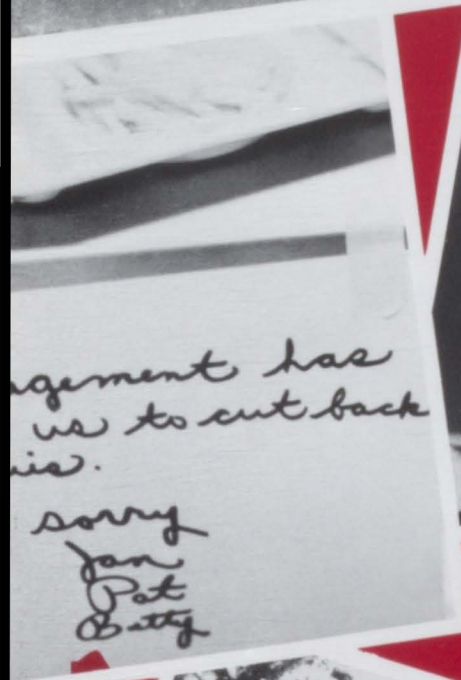 agement has
us to cut back
is.
sorry
Jan
Pat
Betty